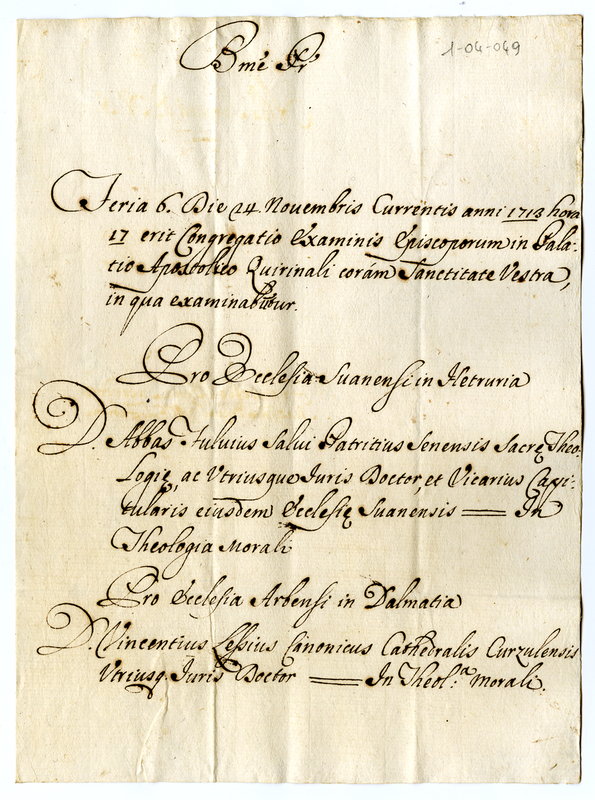 1-04-049
Bme Pr
Feria 6. Die 24 Novembris Currentis anni 1713 hora
17 erit Congregatio Examinis Episcoporum in Pala-
tio Apostolico Quirinali corám Sanctitate Vestra,
in qua examinabitur.
Pro Ecclesia Suanensi in Hetruria
D. Abbas Fulvius Salvi Patritius Senensis Sacrę Theo-
Logię, ac Utriusque Juris Doctor, et Vicarius Capi-
tularis eiusdem Ecclesię Suanensis == In
Theologia Morali
Pro Ecclesia Arbensi in Dalmatia
D. Vincentius Lessius Canonicus Cathedralis Curzulensis
Utriusq. Juris Doctor == In Theol.a Morali.